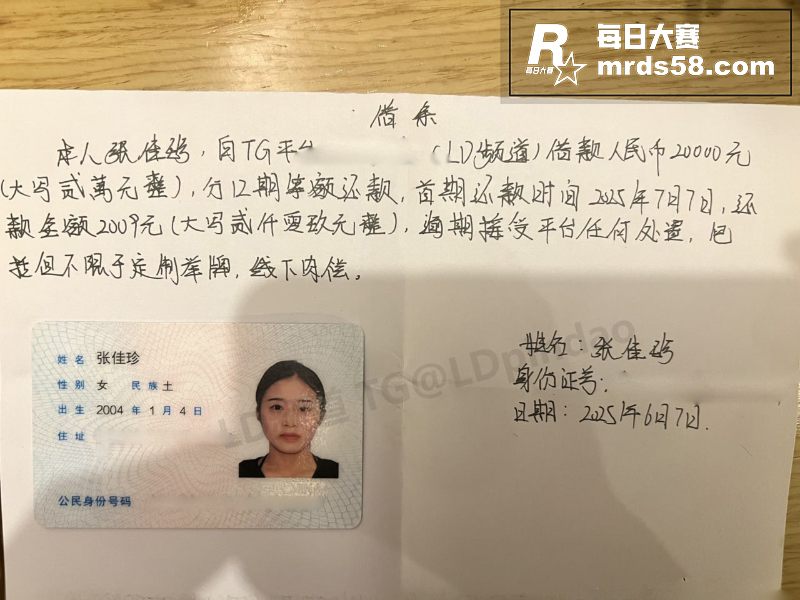 R
每日大赛
每日大赛
mrds58.com
借条
本人[姓名略]，自TG平台（LD频道）借款人民币20000元
（大写贰萬元整），分12期等额还款，首期还款时间2025年7月7日，还
款金额2009元（大写贰仟零玖元整），逾期接受平台任何处置，包
括但不限于定制举牌，线下肉偿。
姓名：[姓名略]
身份证号：
日期：2025年6月7日.
姓名 [姓名略]
性别 女 民族 [略]
出生 [略]
住址
公民身份号码